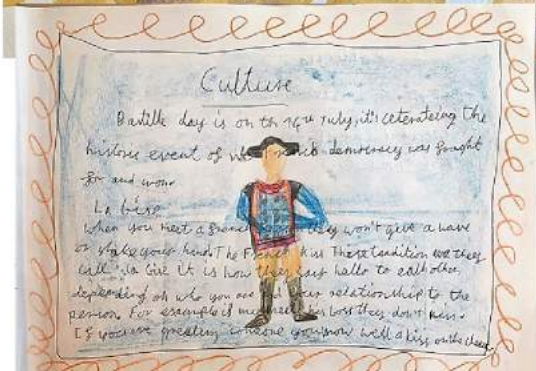 Culture
Bastille day is on th 14th July, it's ceterateing the
historic event of French democracy was fought
for and won
La bise
When you meet a french they won't give a wave
or shake your hand The French kiss These tradition we they
call la bise it is how they say hello to eath other,
depending oh who you are your relationship to the
person. For example if meet his boss they don't
If you are greating someone you now well a kiss on the cheek